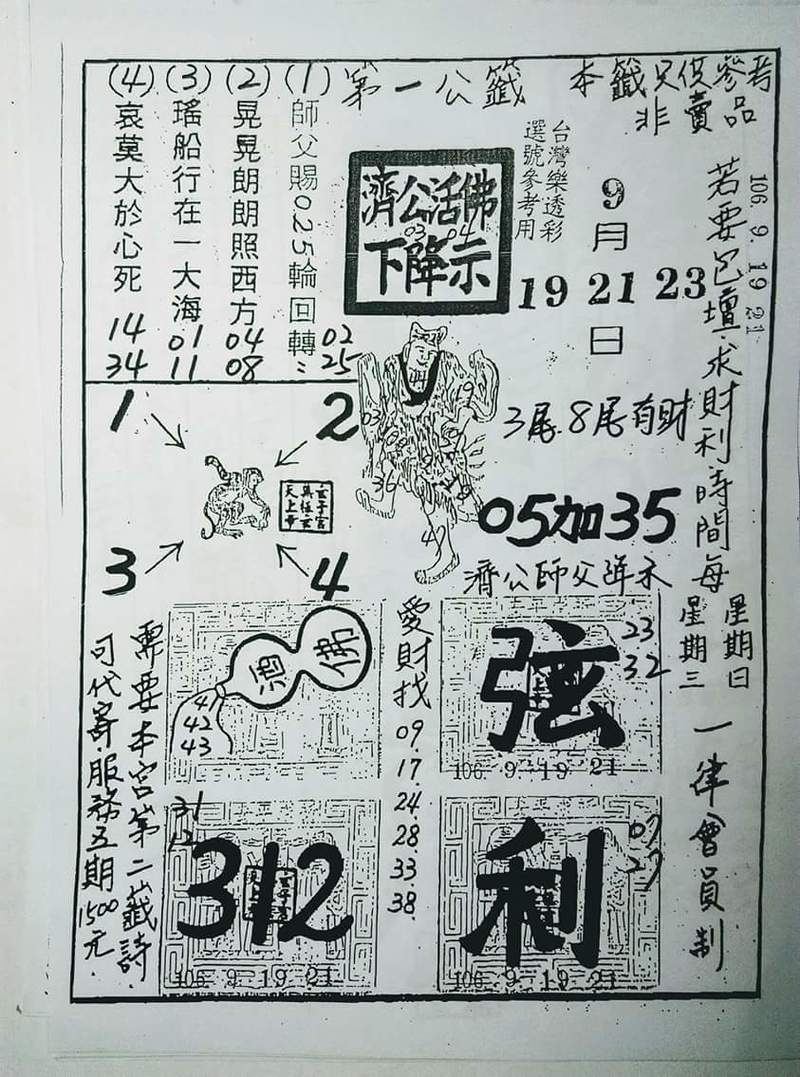 本籤只供參考
非賣品
第一公籤
台灣樂透彩
選號參考用
濟公活佛
03 04
下降示
9月
19 21 23
日
106 9. 19 21
若要巴壇求財利時間每
星期日
星期三
一律會員制
(1)師父賜025輪回轉
02
25
(2)晃晃朗朗照西方
04
08
(3)瑤船行在一大海
01
11
(4)哀莫大於心死
14
34
1
2
3
4
3尾8尾有財
05加35
濟公師父降示
19
03
36
47
愛財找
09
17
24
28
33
38
弦
23
32
106 9 19 21
利
07
27
106 9 19 21
佛
酒
41
42
43
31
12
312
106 9 19 21
需要本宮第二籤詩
可代寄服務五期1500元